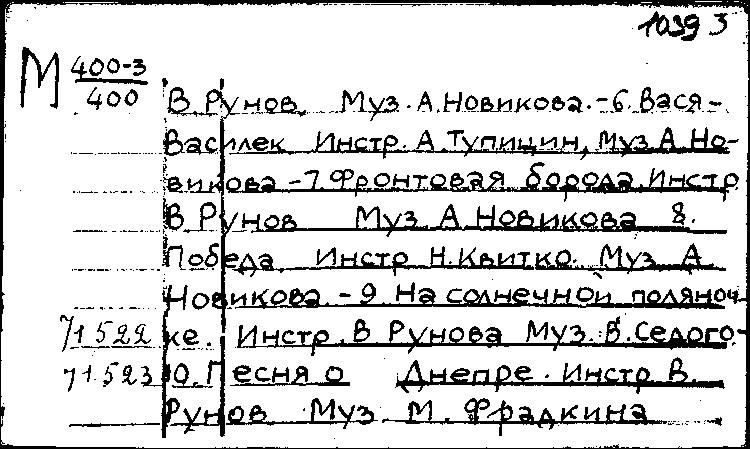 1039 3
М 400-3
400
В. Рунов. Муз. А. Новикова. - 6. Вася-
Василек Инстр. А. Тупицин, Муз. А. Но-
викова - 7. Фронтовая борода. Инстр
В Рунов Муз А Новикова 8.
Победа Инстр Н. Квитко. Муз А
Новикова. - 9. На солнечной поляноч-
71522 ке. Инстр. В Рунова Муз. В. Седого-
71523 10. Песня о Днепре. Инстр В.
Рунов Муз М. Фрадкина